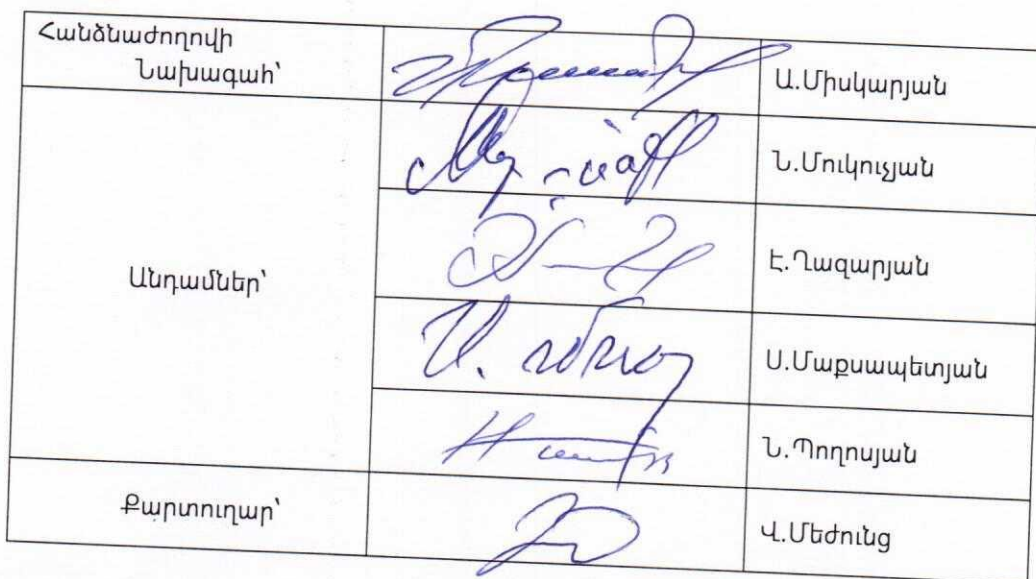 Հանձնաժողովի
Նախագահ՝
Ա.Միսկարյան
Ն.Մուկուչյան
Անդամներ՝
Է.Ղազարյան
Ս.Մաքսապետյան
Ն.Պողոսյան
Քարտուղար՝
Վ.Մեժունց